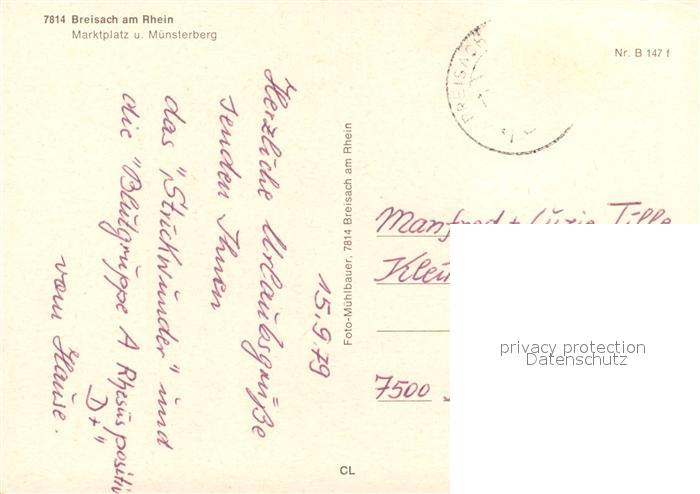 7814 Breisach am Rhein
Marktplatz u. Münsterberg
Nr. B 147 f
BREISACH
15.9.79
Herzliche Urlaubsgrüße
senden Ihnen
das "Strickwunder" und
die "Blutgruppe A Rhesus positiv
D+"
vom Hause.
Foto-Mühlbauer, 7814 Breisach am Rhein
Manfred + Luzie Tille
7500
privacy protection
Datenschutz
CL